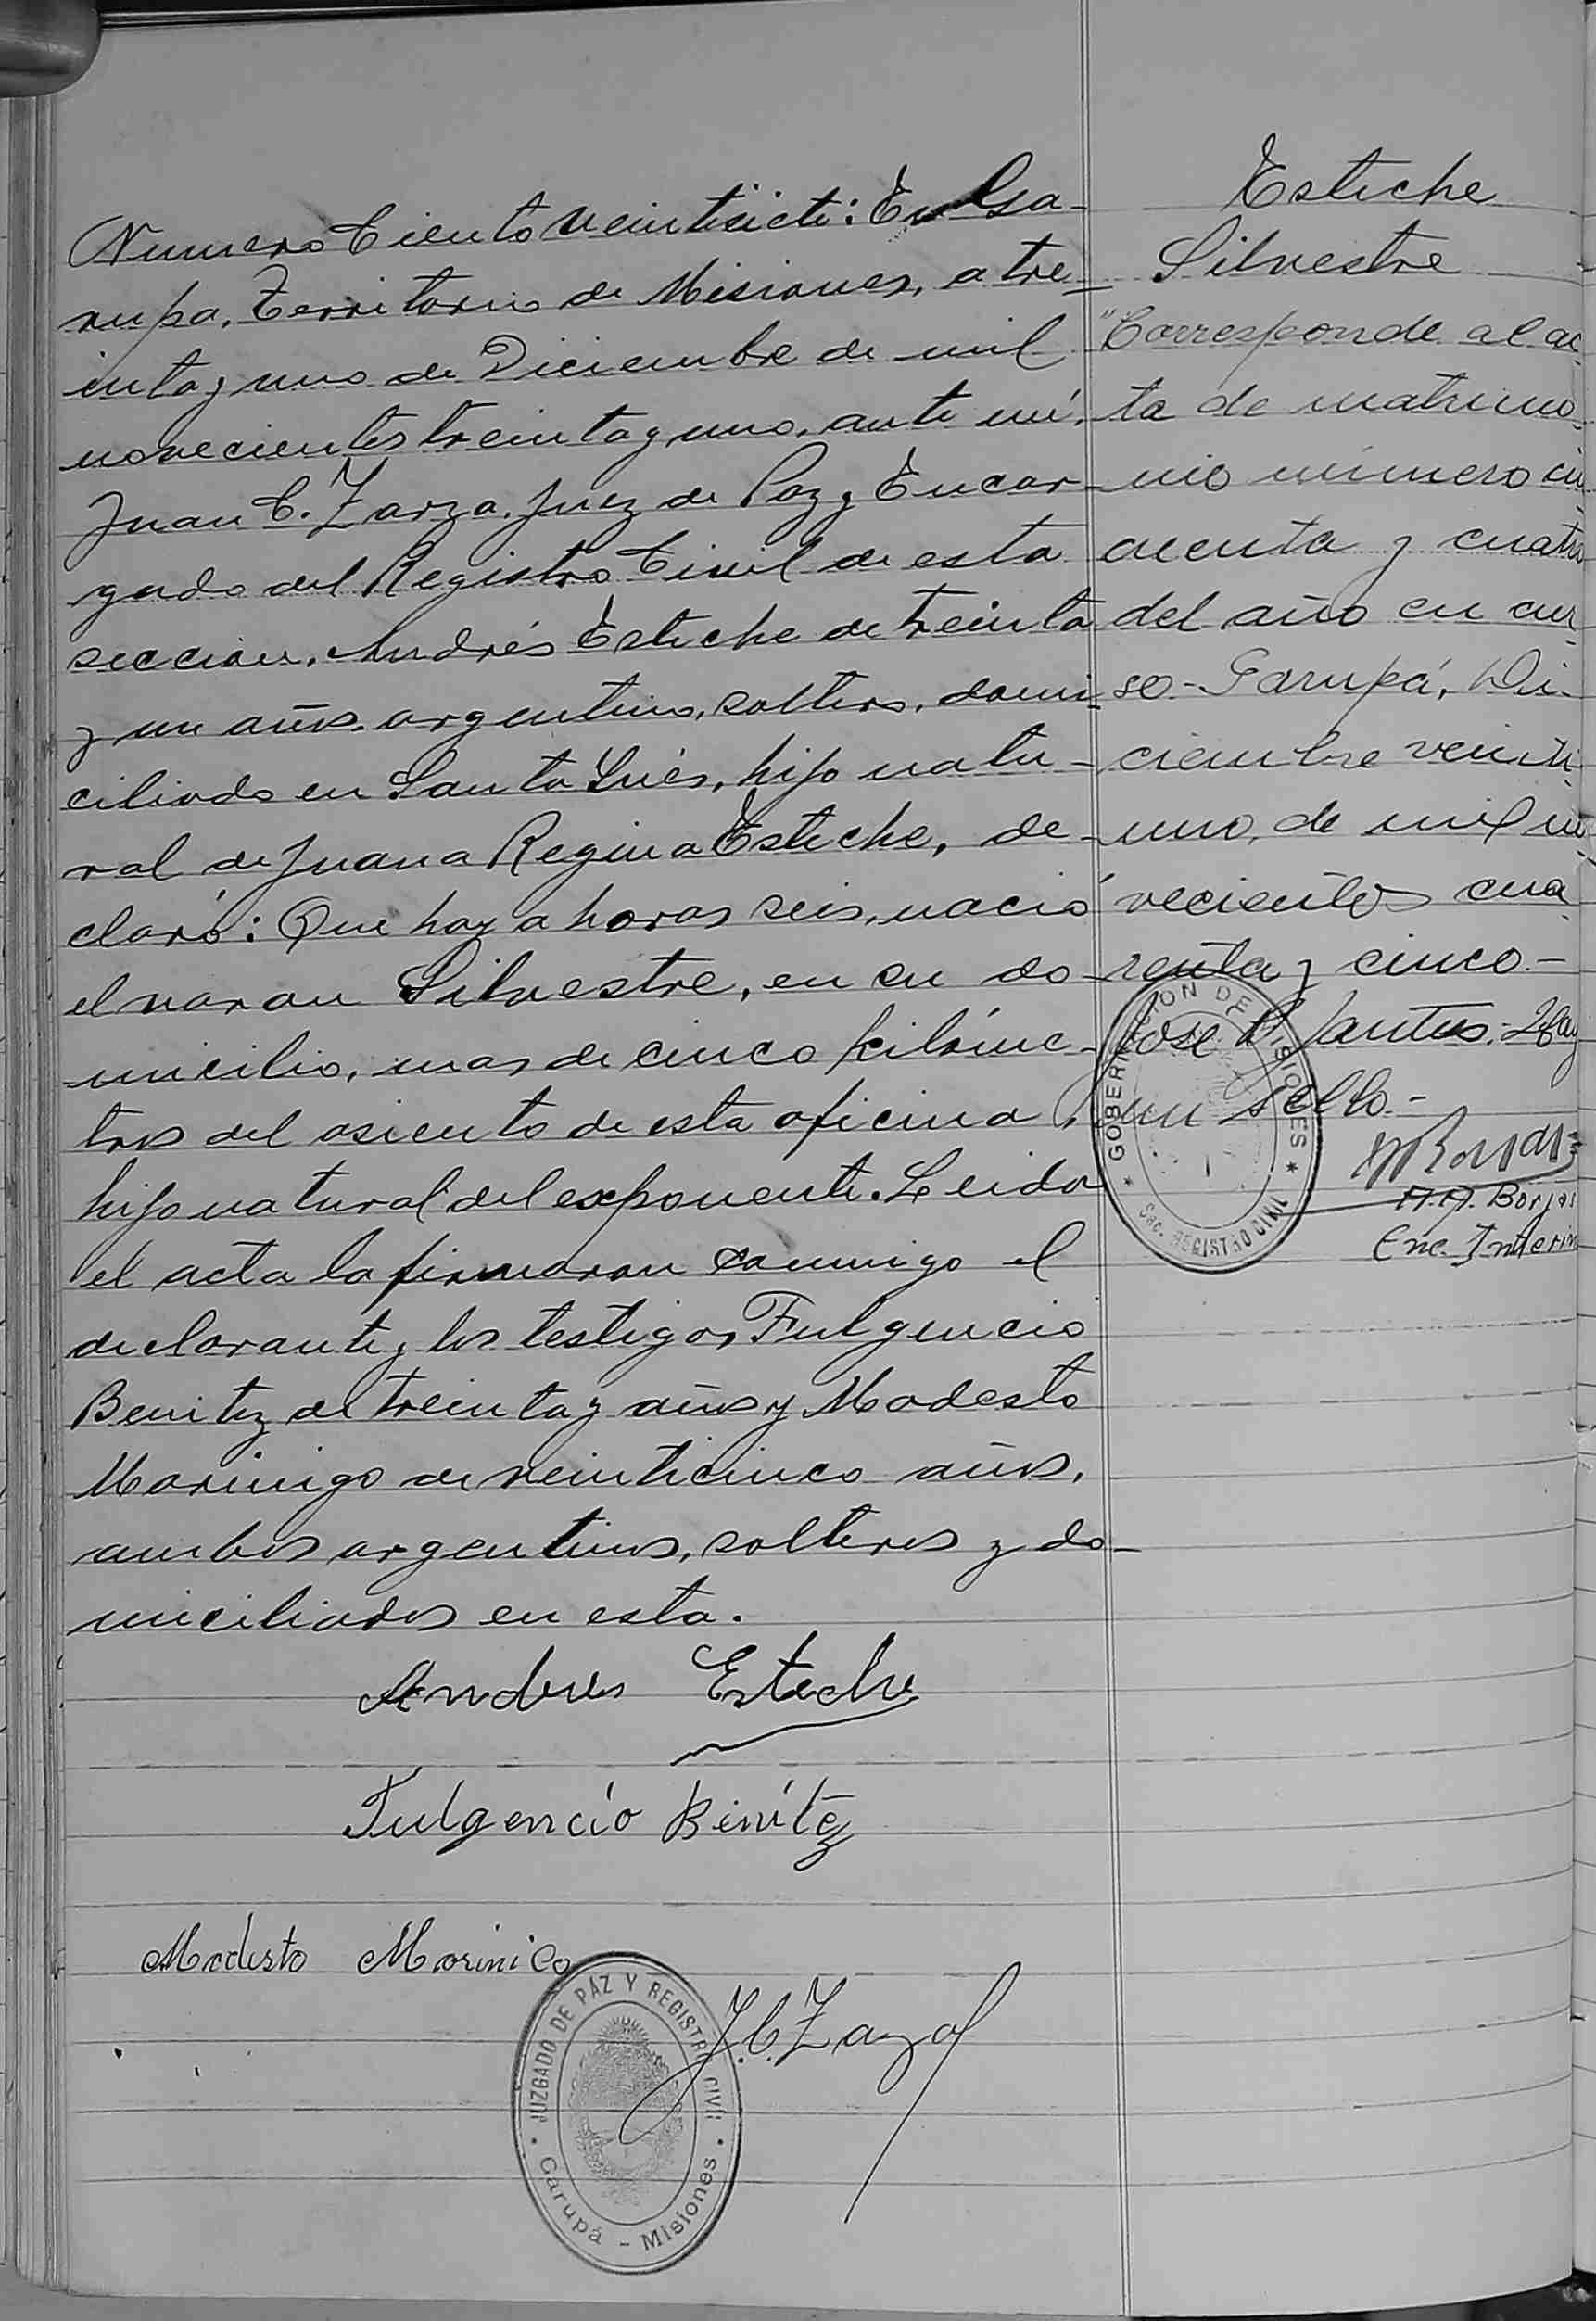 Numero Ciento veintisiete: En Ga-
rupa, Territorio de Misiones, a tre-
inta y uno de Diciembre de mil
novecientos treinta y uno, ante mí,
Juan C. Zarza, Juez de Paz y Encar-
gado del Registro Civil de esta
seccion, Andrés Esteche de treinta
y un años, argentino, soltero, domi-
ciliado en Santa Inés, hijo natu-
ral de Juana Regina Esteche, de-
claró: Que hoy a horas seis, nació
el varon Silvestre, en su do-
micilio, mas de cinco kilóme-
tros del asiento de esta oficina,
hijo natural del exponente. Leida
el acta la firmaron conmigo el
declarante y los testigos Fulgencio
Benitez de treinta y años y Modesto
Morinigo de veinticinco años,
ambos argentinos, solteros y do-
miciliados en esta.
Andres Esteche
Fulgencio Benítez
Modesto Morinico
J. C. Zarza
JUZGADO DE PAZ Y REGISTRO CIVIL
Garupá - Misiones
Esteche
Silvestre
"Corresponde al ac-
ta de matrimo-
nio número cin-
cuenta y cuatro
del año en cur-
so.- Garupá, Di-
ciembre veinti
uno, de mil no-
vecientos cua-
renta y cinco.-
José P. Santus.- Hay
un sello.-
GOBERNACION DE MISIONES
Sec. REGISTRO CIVIL
A. A. Borjas
Enc. Interin